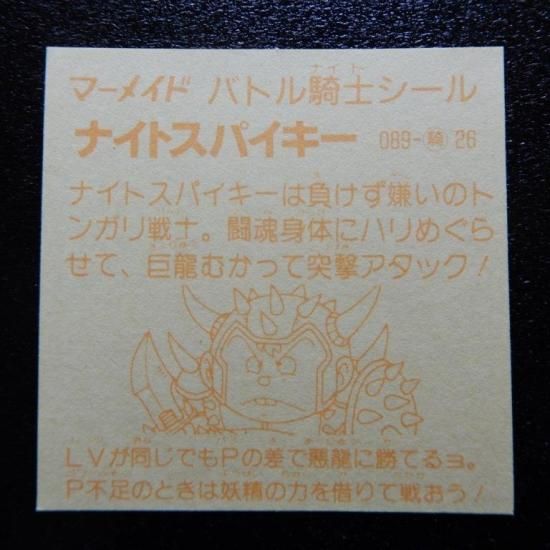 マーメイド バトル騎士シール
ナイト
ナイトスパイキー 089-騎 26
ナイトスパイキーは負けず嫌いのト
ンガリ戦士。闘魂身体にハリめぐら
せて、巨龍むかって突撃アタック!
LVが同じでもPの差で悪龍に勝てるヨ。
P不足のときは妖精の力を借りて戦おう!